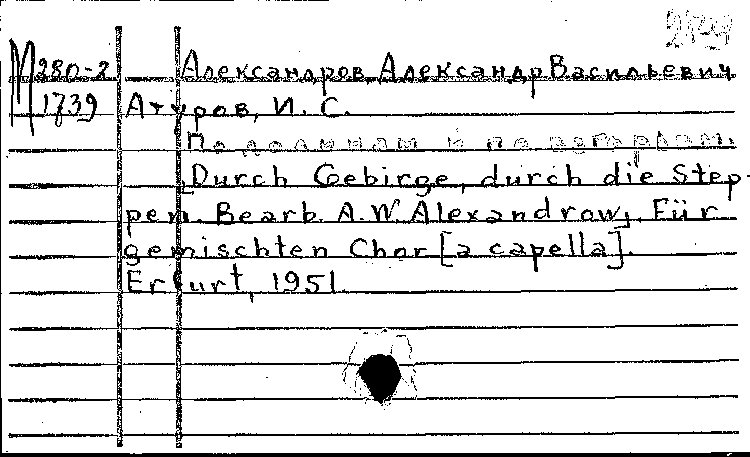 М280-2 Александров, Александр Васильевич
1739 Атуров, И. С.
По долинам и по взгорьям.
[Durch Gebirge, durch die Step-
pen. Bearb. A. W. Alexandrow]. Für
gemischten Chor [a capella].
Erfurt, 1951.